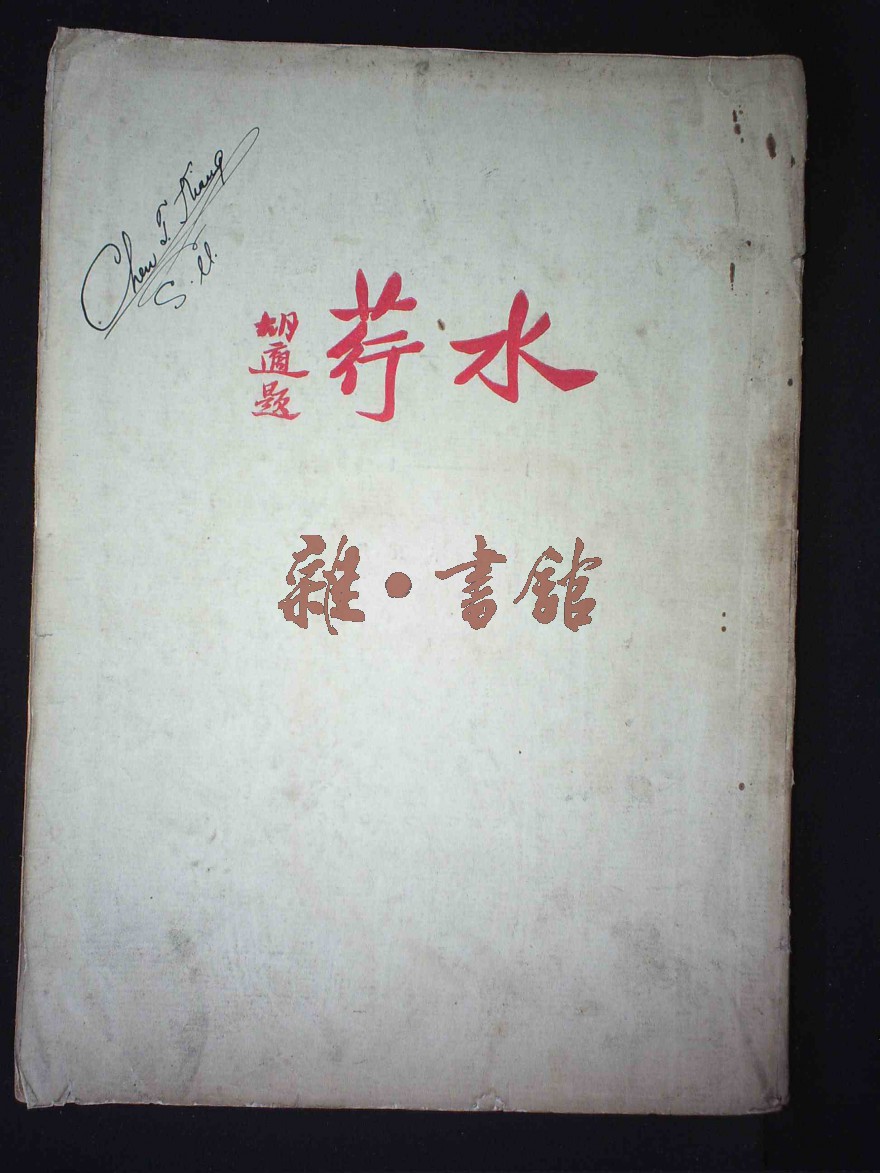 水荇
胡適題
T. Kiang
S.U.
雜·書館